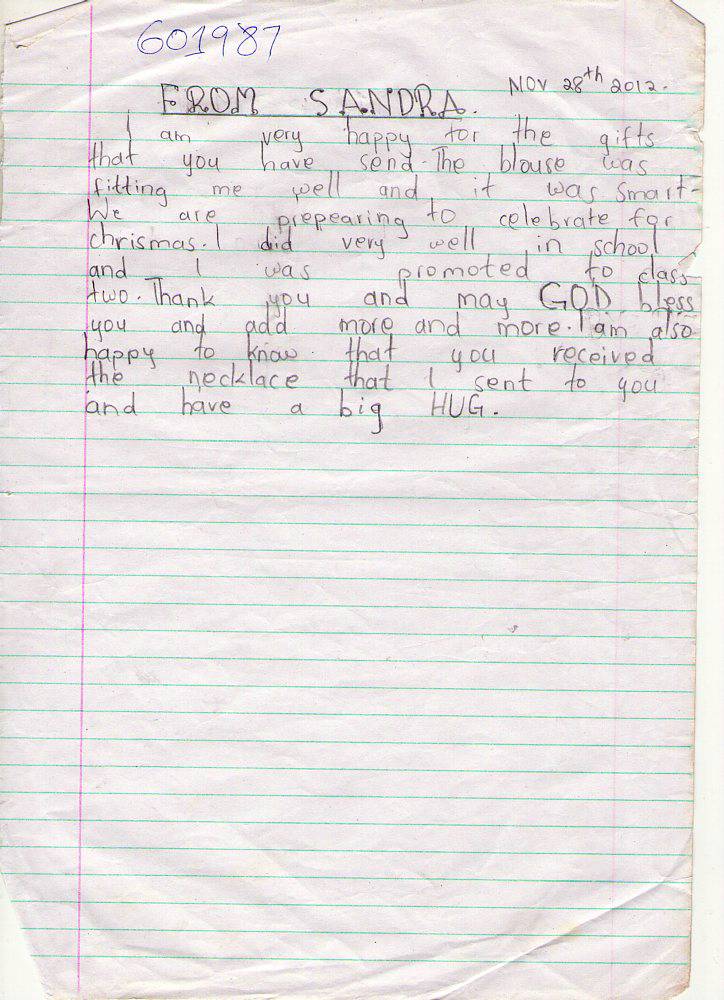 601987
NOV 28th 2012.
FROM SANDRA.
I am very happy for the gifts
that you have send. The blouse was
fitting me well and it was smart.
We are prepearing to celebrate for
chrismas. I did very well in school
and I was promoted to class
two. Thank you and may GOD bless
you and add more and more. I am also
happy to know that you received
the necklace that I sent to you
and have a big HUG.